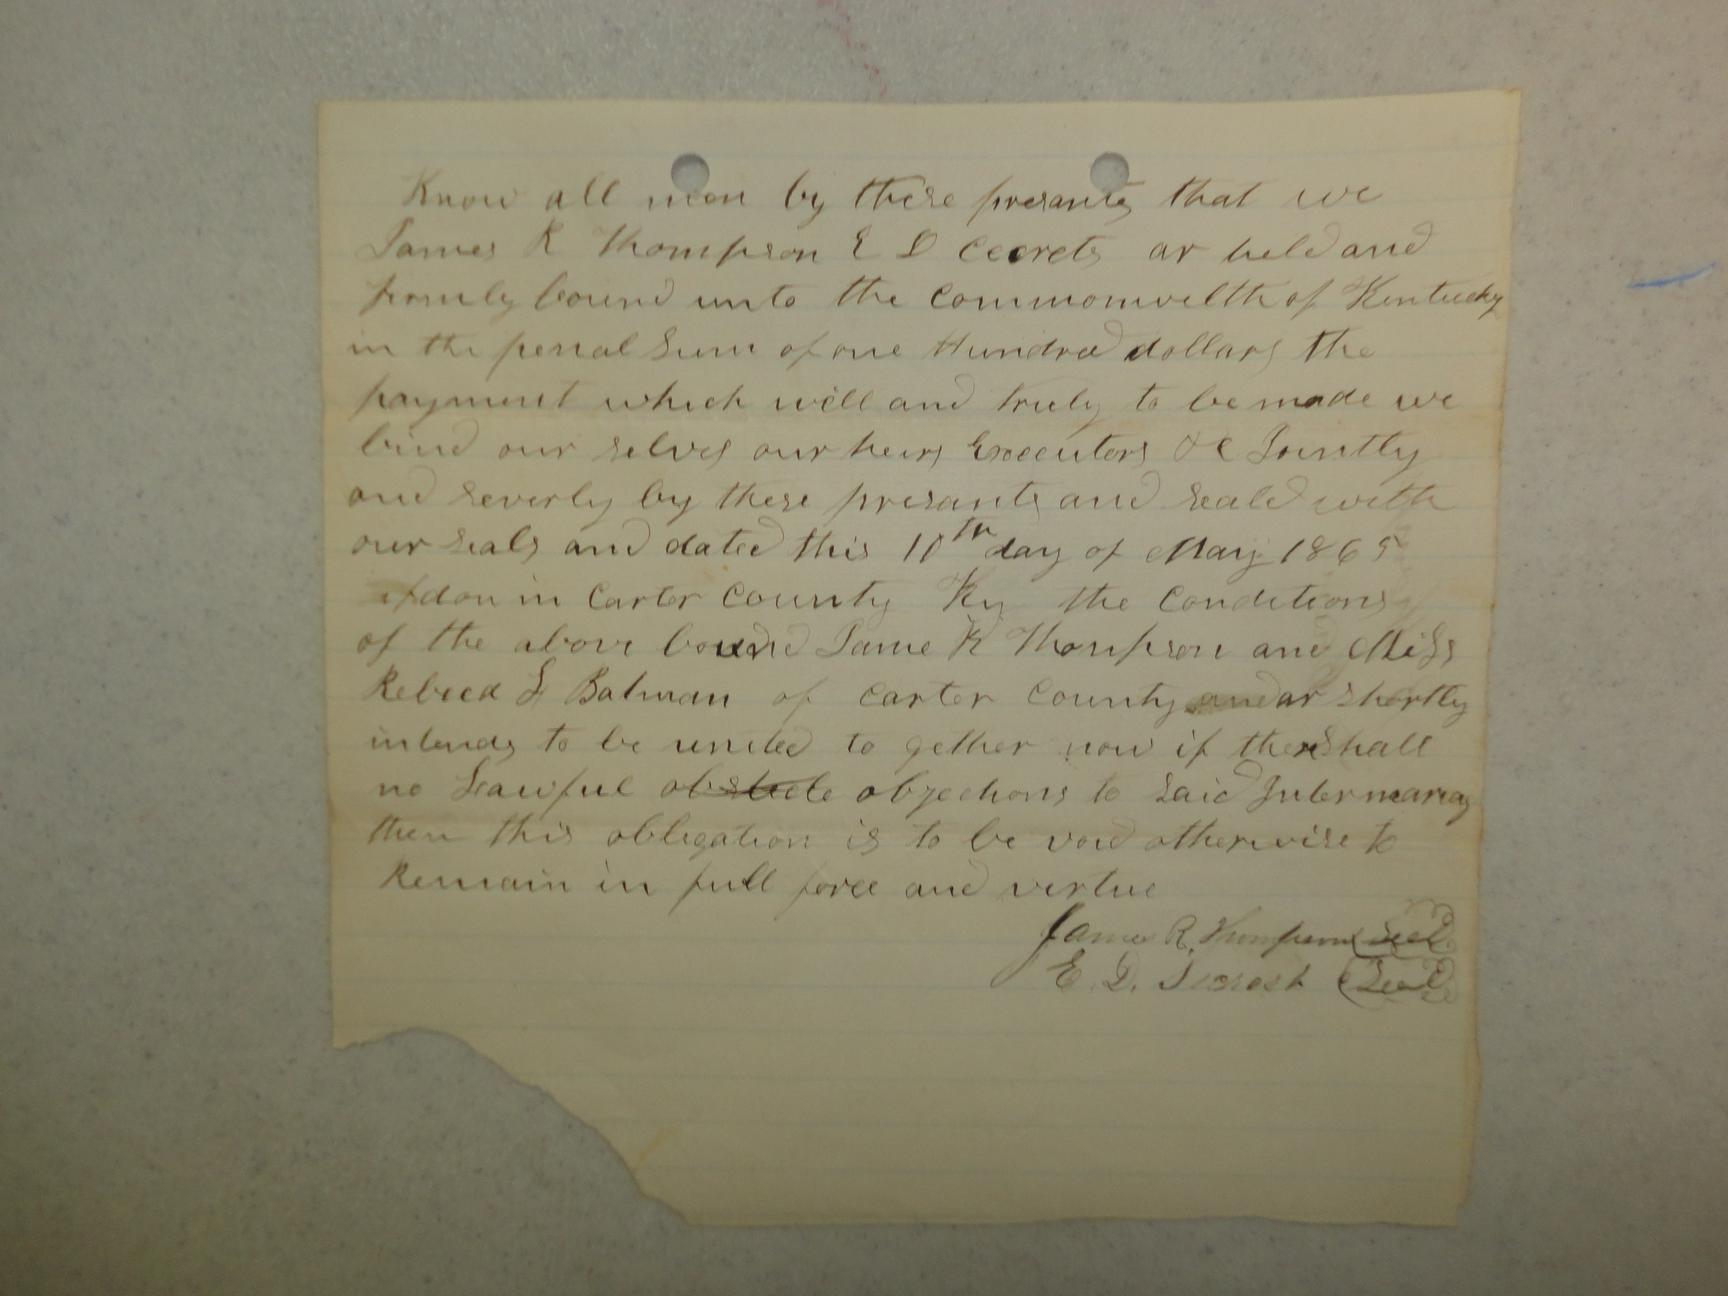 Know all men by these presants that we
James R Thompson E D Cecrets ar held and
fromly bound unto the Commonwelth of Kentucky
in the penal Sum of one Hundred dollars the
payment which will and truly to be made we
bind our selves our heirs Executors &C Jointly
and severly by these presants and seald with
our seals and dated this 10th day of May 1865
don in Carter County Ky the Conditions
of the above bound Jame R Thompson and Miss
Rebeca Batman of Carter County ar shortly
intends to be united to gether now if there shall
no Lawful obstucle objections to said Intermariag
then this obligation is to be void otherwise to
Remain in full force and vertue
James R. Thompson (Seal)
E. D. Secrest (Seal)